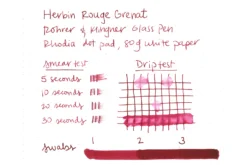 Herbin Rouge Grenat
Rohrer & Klingner Glass Pen
Rhodia dot pad, 80g white paper
Smear test Drip test
5 seconds
10 seconds
20 seconds
30 seconds
1 2 3
Swabs